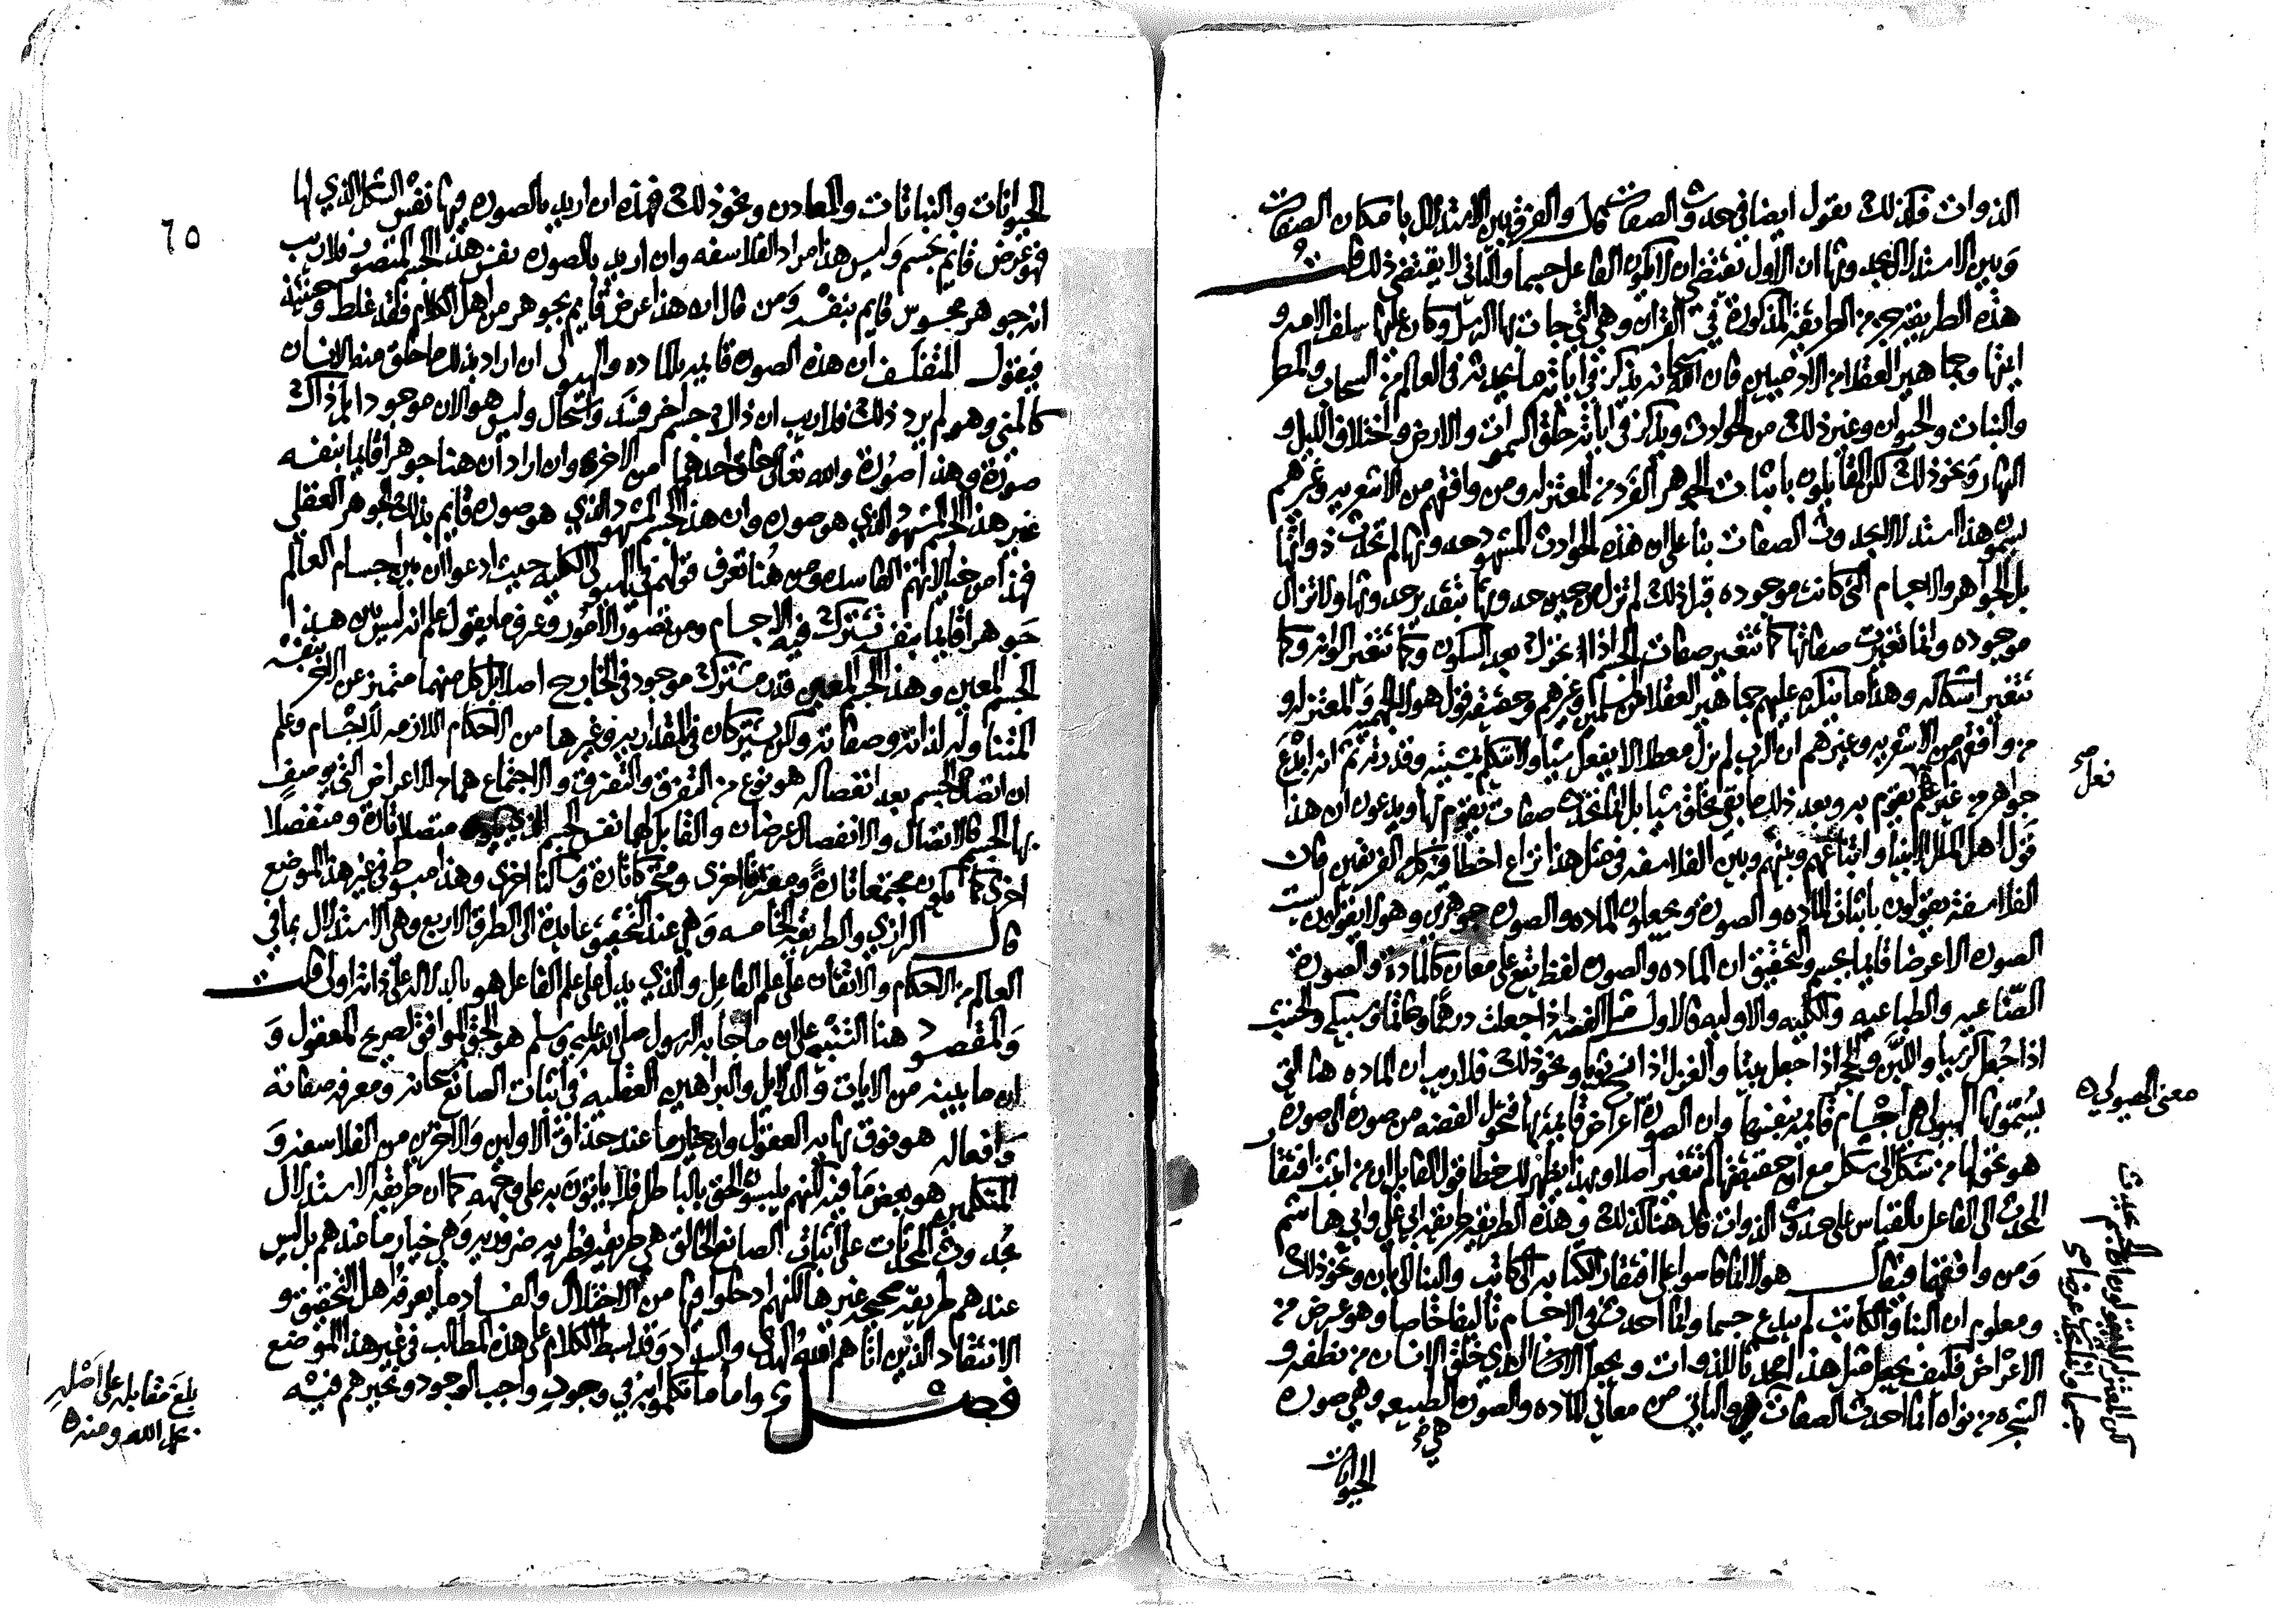 الذوات فكذلك يقول ايضا في حدوث الصفات قال والفرق بين الاستدلال بامكان الصفات
وبين الاستدلال بحدوثها ان الاول يقتضي ان لا يكون الفاعل جسما والثاني لا يقتضي ذلك قلت
هذه الطريقة جزء من الطريقة المذكورة في القران وهي التي جات بها الرسل وكان عليها سلف الامه و
ايمتها وجماهير العقلا من الادميين فان الله سبحانه يذكر في اياته ما يحدثه في العالم من السحاب والمطر
والنبات والحيوان وغير ذلك من الحوادث ويذكر في اياته خلق السموات والارض واختلاف الليل و
النهار ونحو ذلك لكن القايلون باثبات الجوهر الفرد من المعتزله ومن وافقهم من الاشعريه وغيرهم
يسمون هذا استدلالا بحدوث الصفات بنا على ان هذه الحوادث المشهود حدوثها لم تحدث ذواتها
بل الجواهر والاجسام التي كانت موجوده قبل ذلك لم تزل من حين حدوثها بتقدير حدوثها ولا تزال
موجوده وانما تغيرت صفاتها كما تتغير صفات الجسم اذا تحرك بعد السكون وكما تتغير الوانه وكما
تتغير اشكاله وهذا مما ينكره عليهم جماهير العقلا من المسلمين وغيرهم وحقيقة قول هولا الجهميه والمعتزله و
من وافقهم من الاشعريه وغيرهم ان الرب لم يزل معطلا لا يفعل شيا ولا يتكلم بمشيته وقدرته ثم انه ابدع
جواهر من غير فعل يقوم به وبعد ذلك ما بقي يخلق شيا بل انما تحدث صفات تقوم بها ويدعون ان هذا
قول اهل الملل الانبيا واتباعهم وبينهم وبين الفلاسفه في مثل هذا نزاع اخطا فيه كلا الفريقين فان
الفلاسفة يقولون باثبات الماده والصورة ويجعلون الماده والصوره جوهرين وهولا يقولون ليست
الصوره الا عرضا قايما بجسم والتحقيق ان الماده والصوره لفظ يقع على معان كالمادة والصورة
الصناعيه والطباعيه والكليه والاوليه فالاول مثل الفضه اذا جعلت درهما وخاتما وسبيكه والخشب
اذا جعل كرسيا واللبن والحجر اذا جعل بيتا والغزل اذا نسج ثوبا ونحو ذلك فلا ريب ان الماده هنا التي
يسمونها الهيولى هي اجسام قايمه بنفسها وان الصورة اعراض قايمة بها فتحول الفضه من صورة الى صوره
هو تحولها من شكل الى شكل مع ان حقيقتها لم تتغير اصلا وبهذا يظهر لك خطا قول القايل ان من اثبت افتقار
المحدث الى الفاعل بالقياس على حدوث الذوات قال هنا كذلك وهذه الطريقه طريقة ابي علي وابي هاشم
ومن وافقهما فيقال هولا انما قاسوا على افتقار الكتابه الى كاتب والبنا الى بان ونحو ذلك
ومعلوم ان البنا والكاتب لم يبدع جسما وانما احدث في الاجسام تاليفا خاصا وهو عرض من
الاعراض فكيف يجعل مثل هذا محدثا للذوات ويجعل الذي خلق الانسان من نطفه و
الشجره من نواه انما احدث الصفات والثاني من معاني الماده والصوره الطبيعيه وهي صوره
هي صح
الحيوانات
فعل صح
معنى الهيولى ه
٦٥
الحيوانات والنباتات والمعادن ونحو ذلك فهذه ان اريد بالصوره فيها نفس الشكل الذي لها
فهو عرض قايم بجسم وليس هذا مراد الفلاسفه وان اريد بالصوره نفس هذا الجسم المتصور فلا ريب
انه جوهر محسوس قايم بنفسه ومن قال ان هذا عرض قايم بجوهر من اهل الكلام فقد غلط وحينئذ
فيقول المتفلسف ان هذه الصوره قايمه بالماده والهيولى ان اراد بذلك ما خلق منه الانسان
كالمني وهو لم يرد ذلك فلا ريب ان ذاك جسم اخر فسد واستحال وليس هو الان موجودا بل ذاك
صورة وهذا صورة والله تعالى خلق احدهما من الاخرى وان اراد ان هنا جوهرا قايما بنفسه
غير هذا الجسم المشهود الذي هو صوره وان هذا الجسم المشهود الذي هو صوره قايم بذلك الجوهر العقلي
فهذا من خيالاتهم الفاسده ومن هنا تعرف قولهم في الهيولى الكليه حيث ادعوا ان بين اجسام العالم
جوهرا قايما بنفسه تشترك فيه الاجسام ومن تصور الامور وعرف ما يقول علم انه ليس بين هذا
الجسم المعين وهذا الجسم المعين قدر مشترك موجود في الخارج اصلا بل كل منهما متميز عن الاخر بنفسه
المتناوله لذاته وصفاته ولكن يشتركان في المقداريه وغيرها من الاحكام اللازمه للاجسام وعلم
ان اتصال الجسم بعد انفصاله هو نوع من التفرق والتفرق والاجتماع هما من الاعراض التي يوصف
بها الجسم فالاتصال والانفصال عرضان والقابل لهما نفس الجسم الذي يكون متصلا تارة ومنفصلا
اخرى كما يكون مجتمعا تارة ومفترقا اخرى ومتحركا تارة وساكنا اخرى وهذا مبسوط في غير هذا الموضع
قال الرازي والطريقه الخامسه وهي عند التحقيق عايدة الى الطرق الاربع وهي الاستدلال بما في
العالم من الاحكام والاتقان على علم الفاعل والذي يدل على علم الفاعل هو بالدلاله على ذاته اولى قلت
والمقصود هنا التنبيه على ان ما جا به الرسول صلى الله عليه وسلم هو الحق الموافق لصريح المعقول و
ان ما بينه من الايات والدلايل والبراهين العقليه في اثبات الصانع سبحانه ومعرفه صفاته
وافعاله هو فوق نهايه العقول وان خيار ما عند حذاق الاولين والاخرين من الفلاسفه و
المتكلمين هو بعض ما فيه لكنهم يلبسون الحق بالباطل فلا ياتون به على وجهه كما ان طريقه الاستدلال
بحدوث المحدثات على اثبات الصانع الخالق هي طريقه فطريه ضروريه وهي خيار ما عندهم بل ليس
عندهم طريقه صحيحه غيرها لكنهم ادخلوا فيها من الاختلال والفساد ما يعرفه اهل التحقيق و
الانتقاد الذين اتاهم الله الهدى والسداد وقد بسط الكلام على هذه المطالب في غير هذا الموضع
فصل واما ما تكلموا به في وجود واجب الوجود وتحيرهم فيه
بلغ مقابله على اصله
بحمد الله ومنه ه